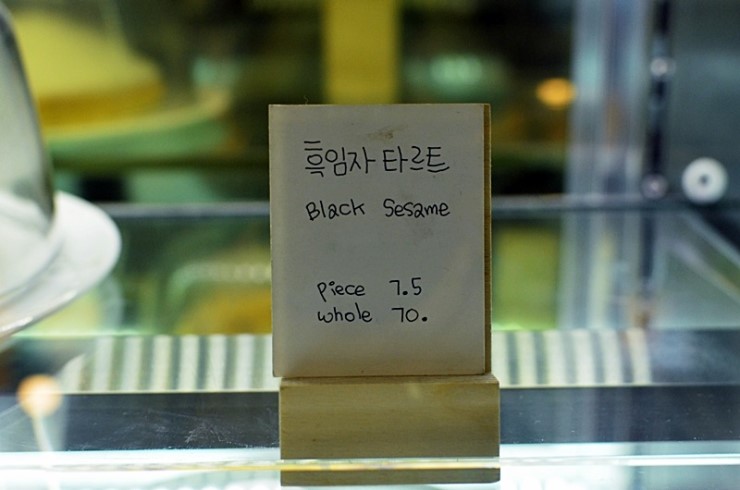 흑임자 타르트
Black Sesame
piece 7.5
whole 70.